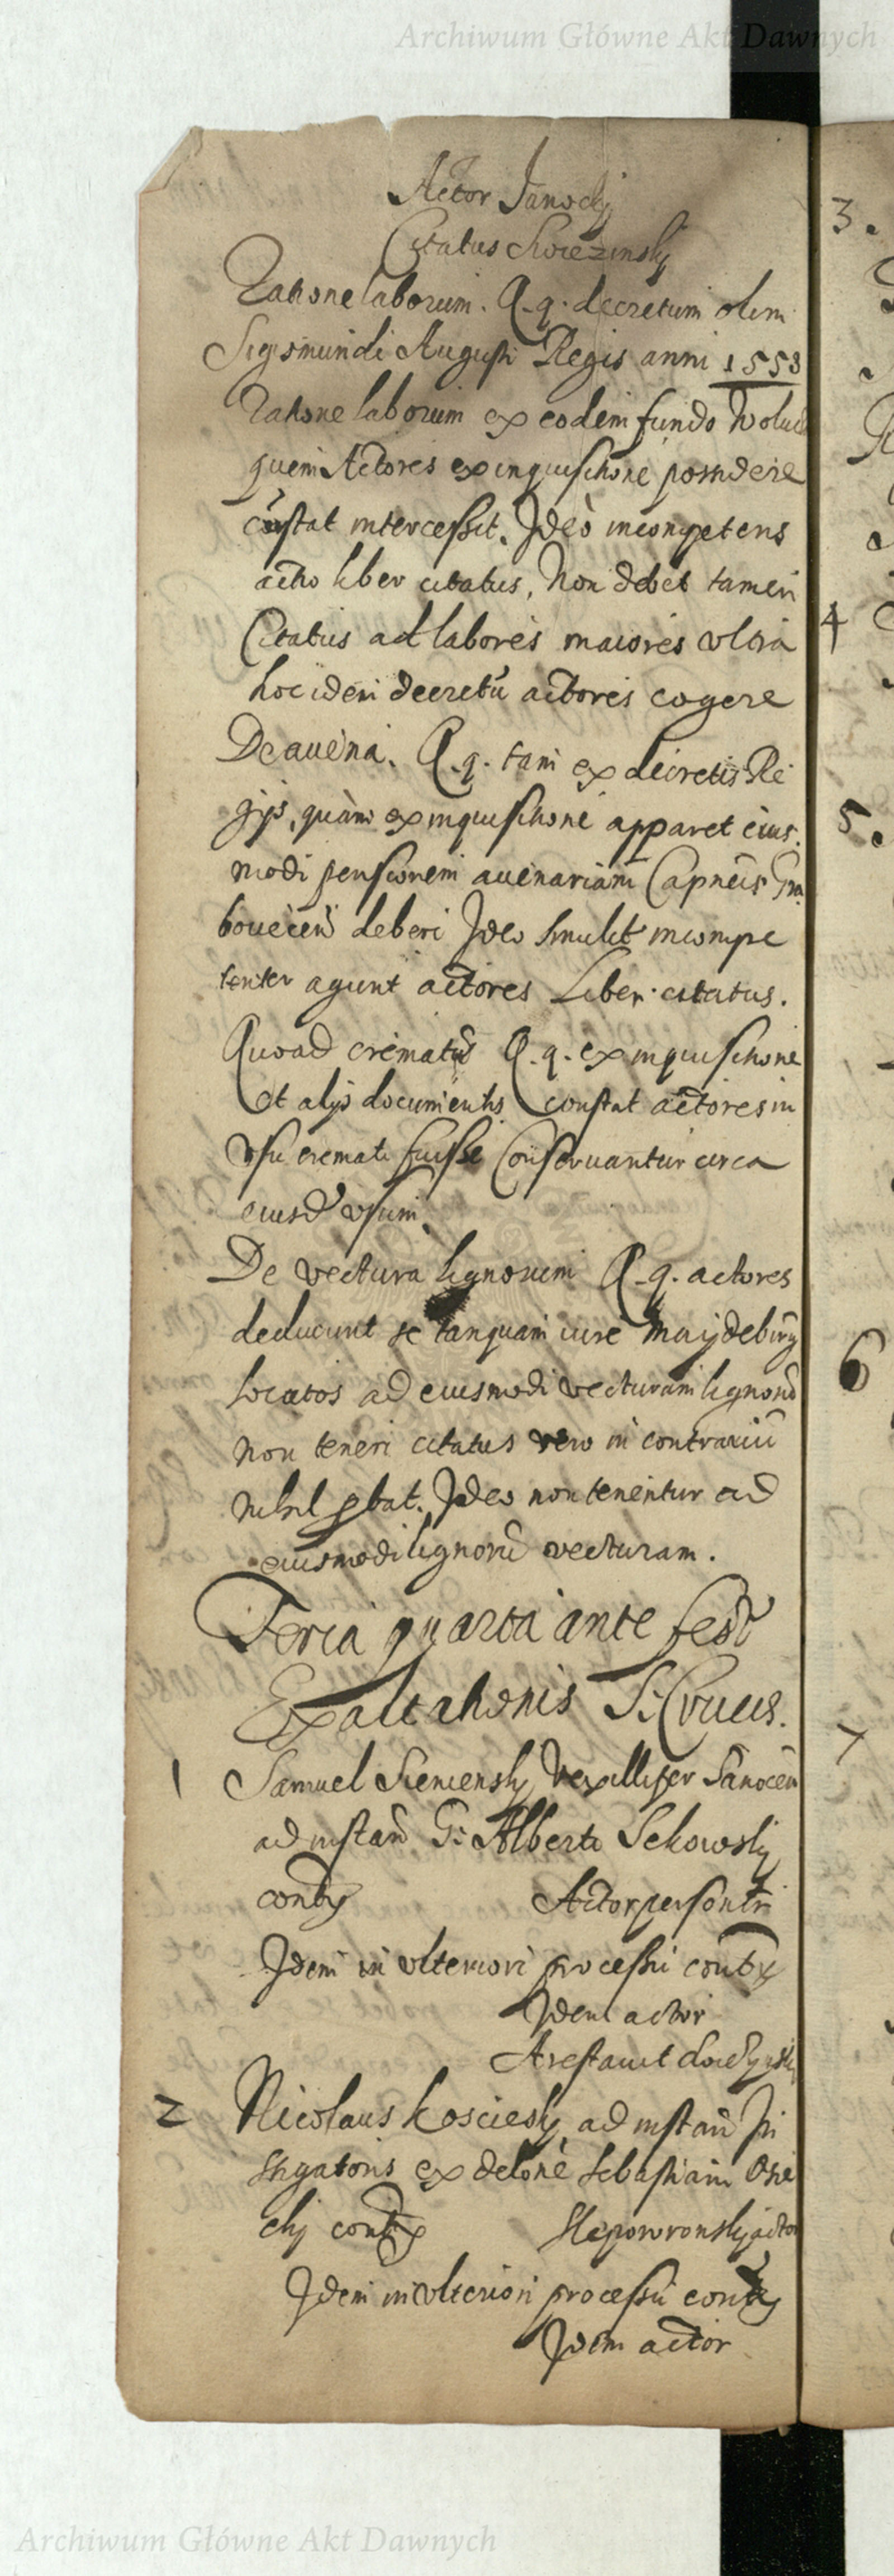 Archiwum Główne Akt Dawnych
Actor Janocky
Citatus
Ratione laborum. Q. q. decretum olim
Sigismundi Augusti Regis anni 1553
Ratione laborum ex eodem fundo
quem Actores ex inquisitione possidere
cũstat intercessit. Ideo incompetens
actio liber citatus, Non debet tamen
Citatus ad labores maiores vltra
hoc idem decretũ actores cogere
De auena. Q. q. tam ex decretis Re
gijs, quàm ex inquisitione apparet eius
modi pensionem auenariam Capneis Gra
bouecen deberi Ideo simulet incompe
tenter agunt actores Liber citatus.
Quoad crematũ Q. q. ex inquisitione
Et alijs documentis constat actores in
vsu cremati fuisse Conseruantur circa
eiusd vsum.
De vectura lignorum Q. q. actores
deducunt se tanquam iure Maydeburg
locatos ad eiusmodi vecturam lignorũ
non teneri citatus vero in contrariũ
nihil pbat. Ideo non tenentur ad
eiusmodi lignorũ vecturam.
Feria quarta ante fest
Exaltationis S. Crucis.
1 Samuel Sieniensky Vexillifer Sanocen
ad instan G: Alberti Sekowsky
contx Actor personlr
Idem in vlteriori processu contx
Idem actor
Arestauit
2 Nicolaus Kosciesky ad instan In
stigatoris ex delone Sebastiani
contx Slepowronsky actor
Idem in vlteriori processu contx
Idem actor
3.
4
5.
6
7
Archiwum Główne Akt Dawnych